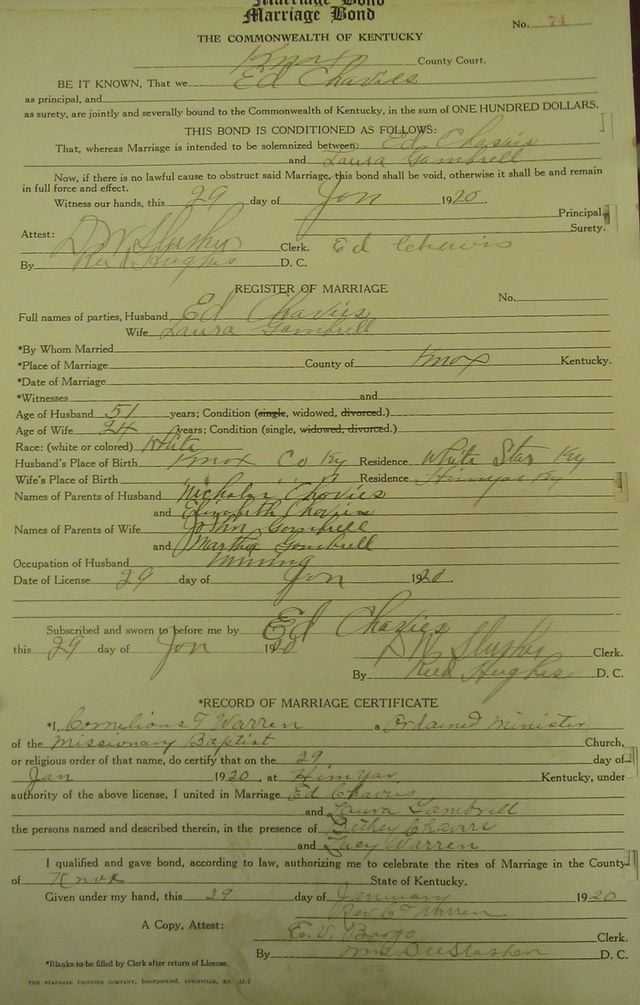 Marriage Bond
Marriage Bond
No. 74
THE COMMONWEALTH OF KENTUCKY
Knox County Court.
BE IT KNOWN, That we Ed Chavies
as principal, and
as surety, are jointly and severally bound to the Commonwealth of Kentucky, in the sum of ONE HUNDRED DOLLARS.
THIS BOND IS CONDITIONED AS FOLLOWS:
That, whereas Marriage is intended to be solemnized between Ed Chavies
and Laura Gambrell
Now, if there is no lawful cause to obstruct said Marriage, this bond shall be void, otherwise it shall be and remain
in full force and effect.
Witness our hands, this 29 day of Jan 1920.
Principal,
Surety.
Attest:
D W Slusher Clerk. Ed Chavis
By Reed Hughes D. C.
REGISTER OF MARRIAGE
No.
Full names of parties, Husband Ed Chavies
Wife Laura Gambrell
*By Whom Married
*Place of Marriage County of Knox Kentucky.
*Date of Marriage
*Witnesses and
Age of Husband 51 years; Condition (single, widowed, divorced.)
Age of Wife 24 years; Condition (single, widowed, divorced.)
Race: (white or colored) White
Husband's Place of Birth Knox Co Ky Residence White Star Ky
Wife's Place of Birth " " " Residence Ky
Names of Parents of Husband Nicholas Chavies
and Elizabeth Chavies
Names of Parents of Wife John Gambrell
and Martha Gambrell
Occupation of Husband Mining
Date of License 29 day of Jan 1920.
Subscribed and sworn to before me by Ed Chavies
this 29 day of Jan 1920 D W Slusher Clerk.
By Reed Hughes D. C.
*RECORD OF MARRIAGE CERTIFICATE
*I, Cornelious T Warren a Ordained Minister
of the Missionary Baptist Church,
or religious order of that name, do certify that on the 29 day of
Jan 1920, at Himyar Kentucky, under
authority of the above license, I united in Marriage Ed Chavies
and Laura Gambrell
the persons named and described therein, in the presence of Chavies
and Lucy Warren
I qualified and gave bond, according to law, authorizing me to celebrate the rites of Marriage in the County
of Knox State of Kentucky.
Given under my hand, this 29 day of January 1920
Rev C T Warren
A Copy, Attest: Clerk.
By D. C.
*Blanks to be filled by Clerk after return of License.
THE STANDARD PRINTING COMPANY, Incorporated, LOUISVILLE, KY.